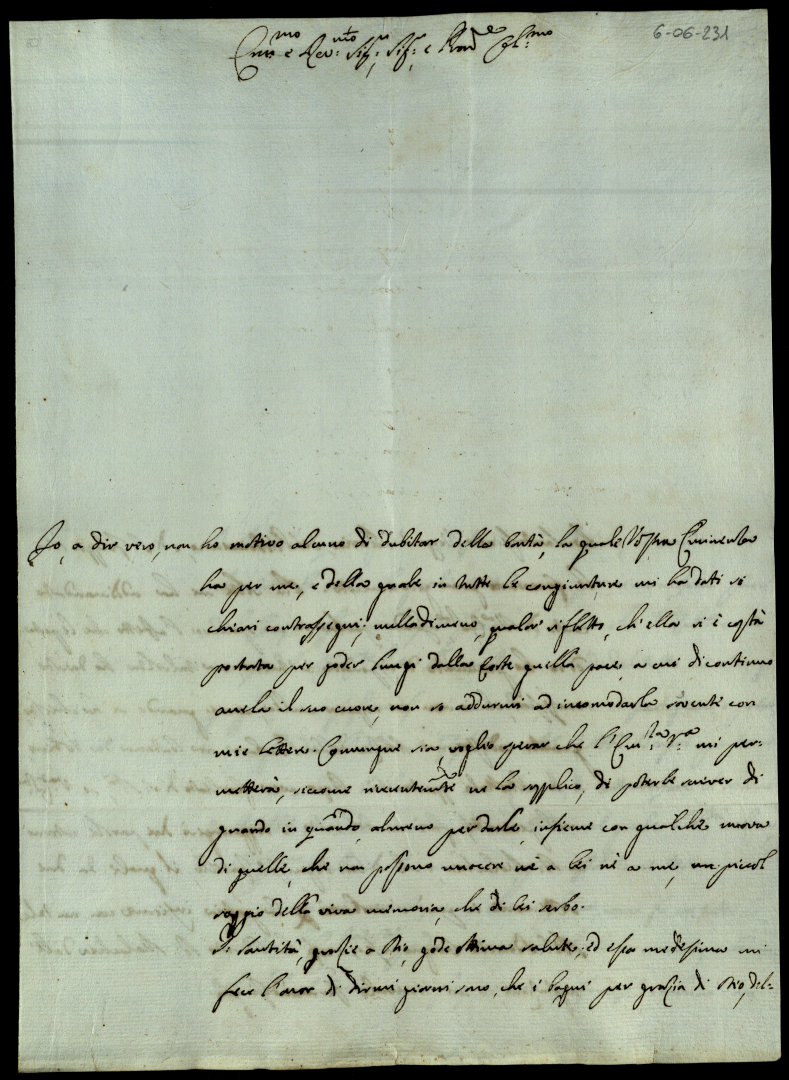 6-06-231
Em.mo e Rev.mo Sig.r Sig.r e Pron.e Col.mo
Io, a dir vero, non ho motivo alcuno di dubitar della bontà, la quale Vostra Eminenza
ha per me, e della quale in tutte le congiunture mi ha dati sì
chiari contrassegni; nulladimeno, qualor rifletto, ch'ella si è costà
portata per goder lungi dalla Corte quella pace, a cui di continuo
anela il suo cuore, non so addurmi ad incomodarla sovente con
mie lettere. Comunque sia, voglio sperar che l'Em.za V.a mi per-
metterà, siccome riverentem.te ne la supplico, di poterle scriver di
quando in quando, almeno per darle, insieme con qualche nuova
di quelle, che non possono nuocere nè a lei nè a me, un piccol
saggio della viva memoria, che di lei serbo.
S. Santità, grazie a Dio, gode ottima salute; ed essa medesima mi
fece l'onor di dirmi giorni sono, che i bagni per grazia di Dio, del-